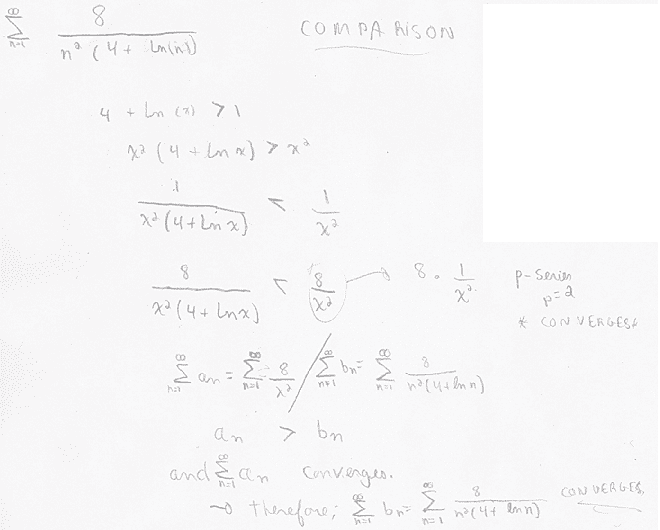 ∞ Σ n=1 8 / n² (4 + ln(n)) COMPARISON
4 + ln (x) > 1
x² (4 + ln x) > x²
1 / x² (4 + ln x) < 1 / x²
8 / x² (4 + ln x) < 8 / x² → 8 · 1 / x² p-series
p=2
* CONVERGES*
∞ Σ n=1 an = ∞ Σ n=1 8 / x² / ∞ Σ n=1 bn = ∞ Σ n=1 8 / n² (4 + ln n)
an > bn
and ∞ Σ n=1 an converges.
→ therefore; ∞ Σ n=1 bn = ∞ Σ n=1 8 / n² (4 + ln n) CONVERGES.